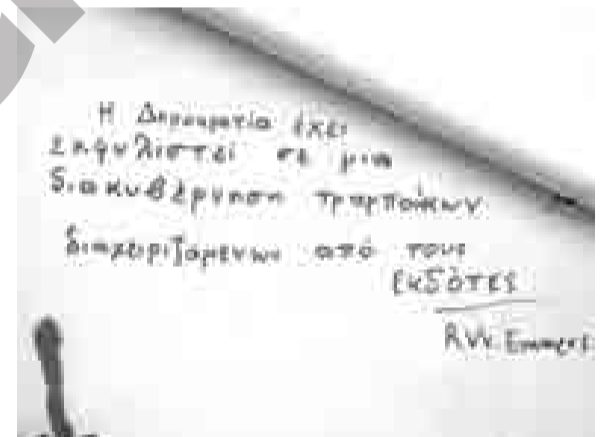 Η Δημοκρατία έχει
εκφυλιστεί σε μια
διακυβέρνηση τραμπούκων
διαχειριζόμενων από τους
εκδότες
R.W. Emmers